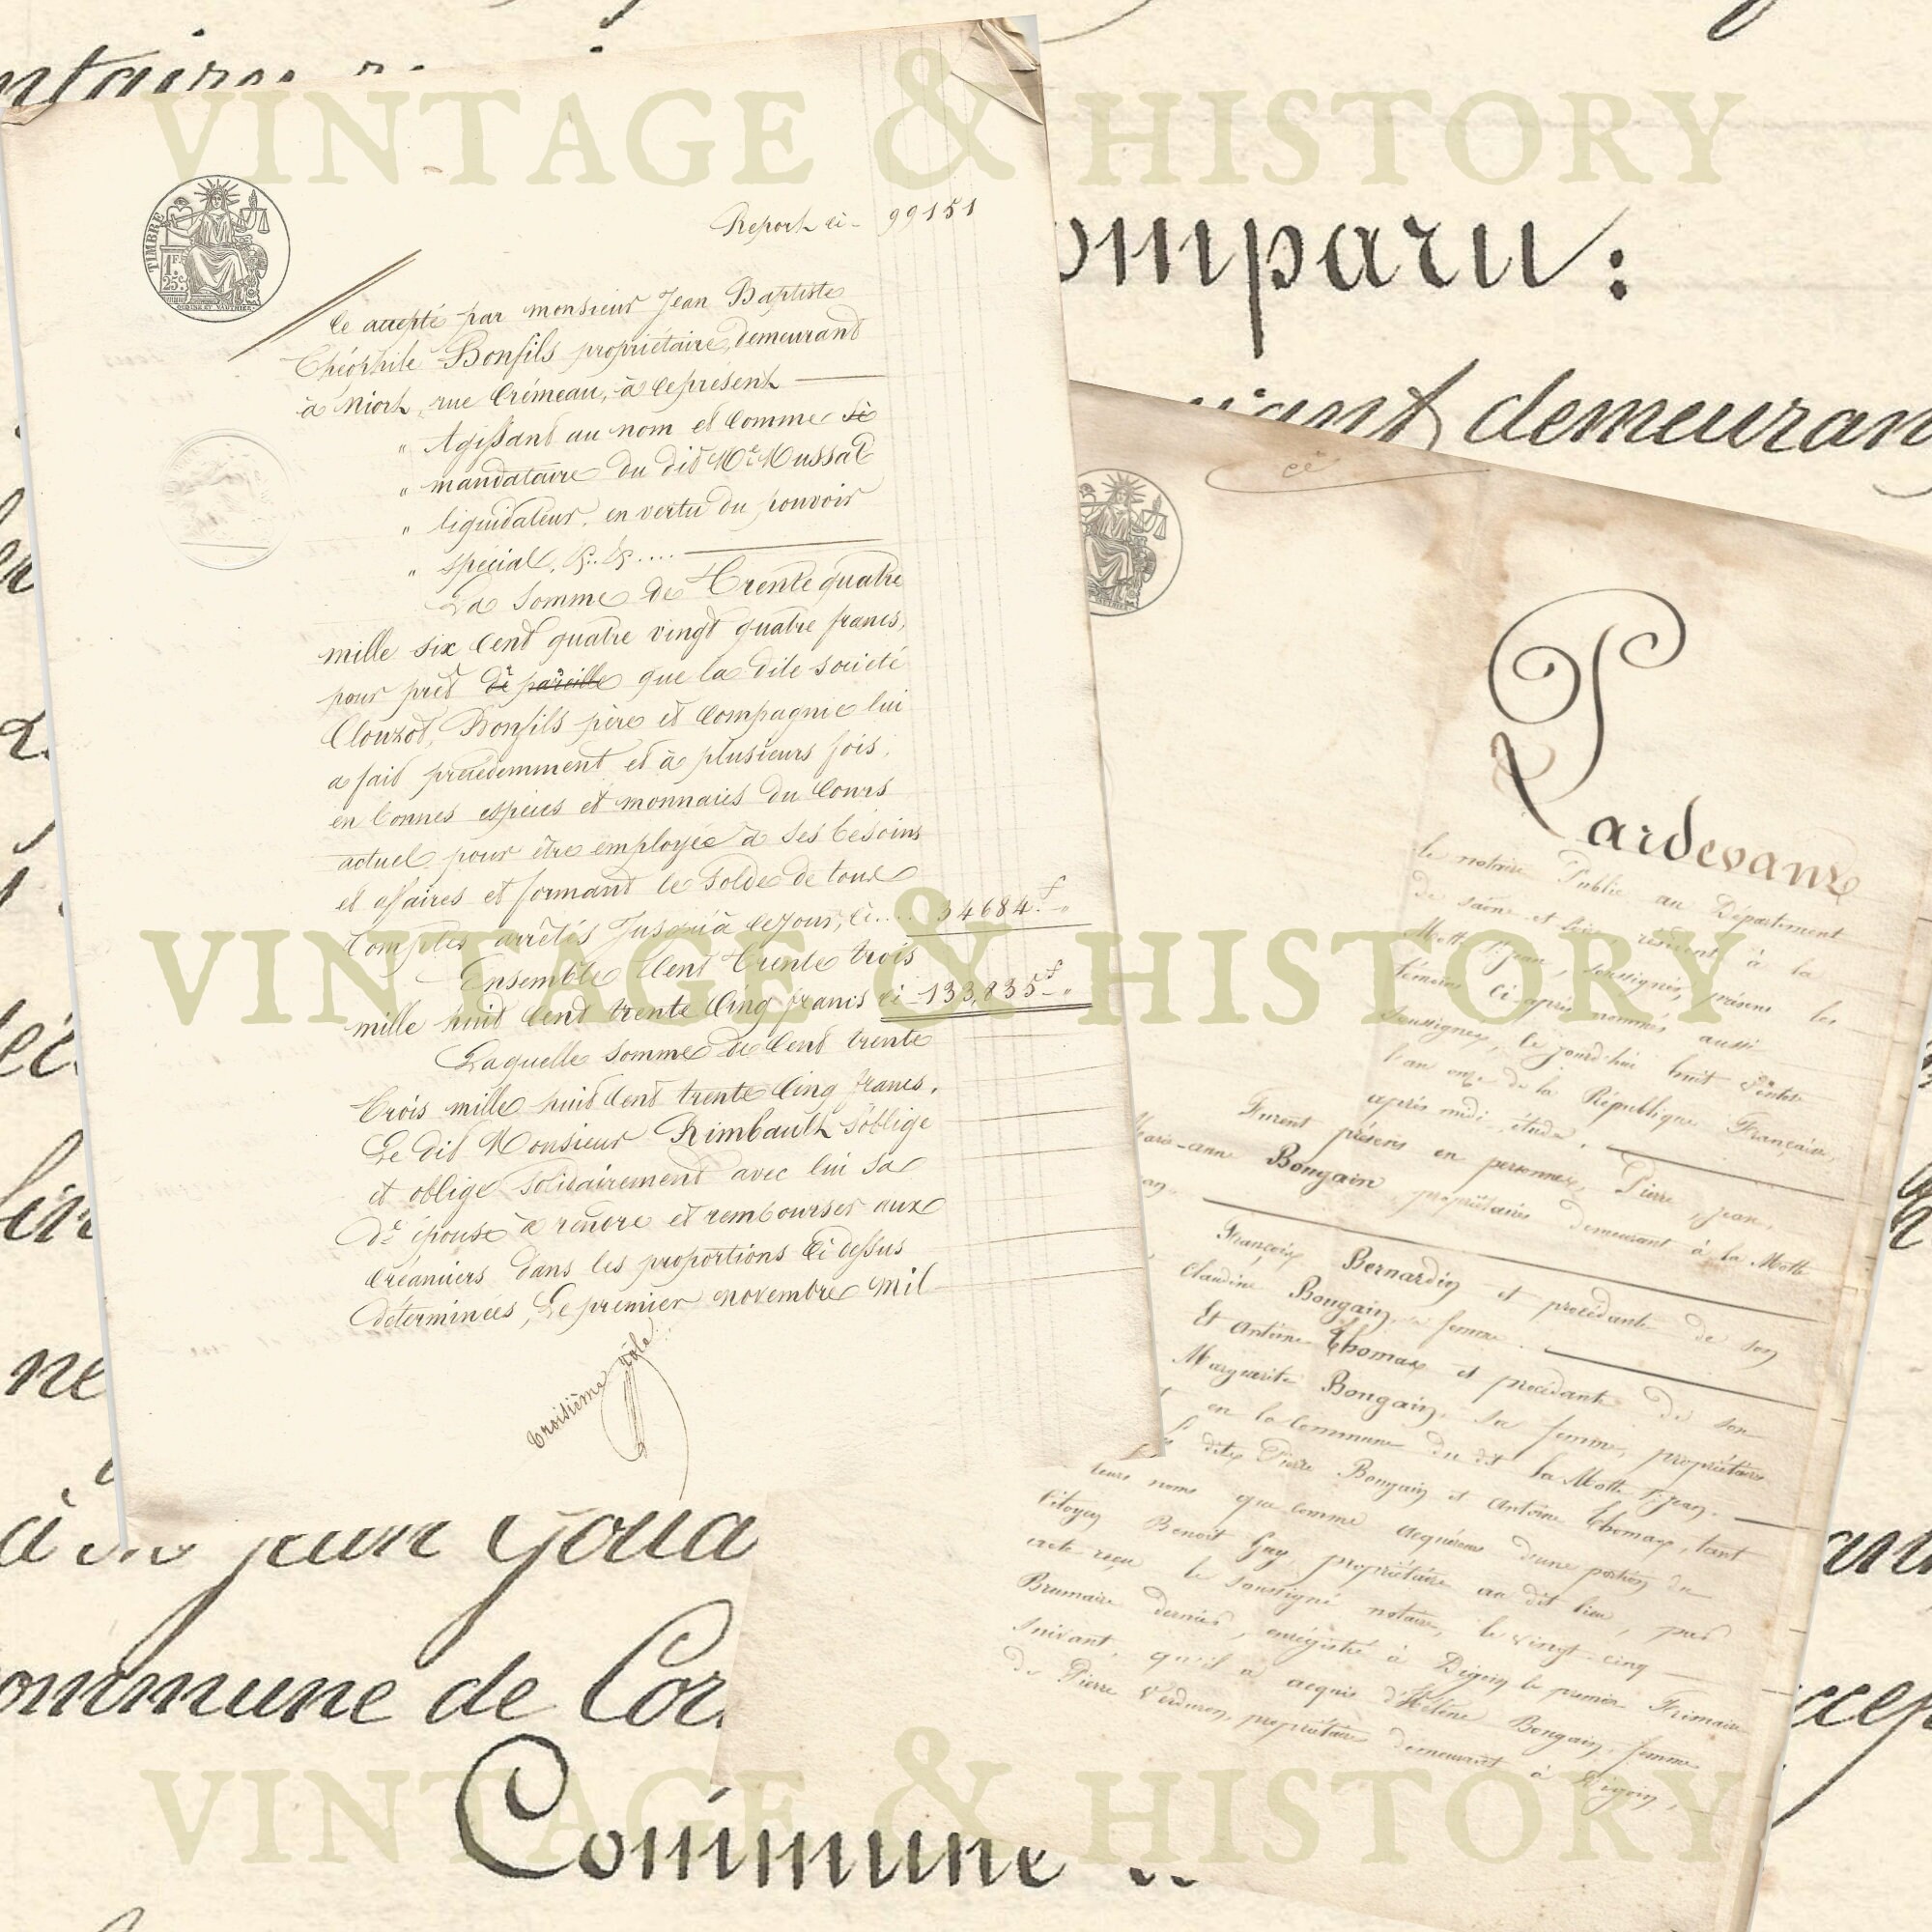 VINTAGE & HISTORY
TIMBRE
1 FR
25 C.
Report ci - 99151
Ce accepté par monsieur Jean Baptiste
Théophile Bonfils propriétaire, demeurant
à Niort, rue Crémeau, à ce présent
" Agissant au nom et comme
" mandataire du dit Me Mussat
" liquidateur, en vertu du pouvoir
" spécial, &. &....
La somme de Trente quatre
mille six cent quatre vingt quatre francs,
pour prêt de pareille que la dite société
Clouzot, Bonfils père et Compagnie lui
a fait précédemment et à plusieurs fois,
en bonnes espèces et monnaies du cours
actuel pour être employée à ses besoins
et affaires et formant le solde de tous
Comptes arrêtés jusqu'à ce jour, ci.... 34684 f "
Ensemble Cent trente trois
mille huit cent trente cinq francs ci - 133,835 f "
Laquelle somme de Cent trente
trois mille huit cent trente cinq francs,
Le dit Monsieur Rimbault s'oblige
et oblige solidairement avec lui sa
de épouse à rendre et rembourser aux
créanciers dans les proportions ci dessus
déterminées, Le premier novembre mil
troisième rôle
VINTAGE & HISTORY
omparu :
demeuran
Pardevant
le notaire Public au Département
de saône et loire, résident à la
Motte St jean, soussigné, présens les
témoins ci-après nommés aussi
soussignés, le jourd'hui huit
l'an onze de la République Française,
après midi, étude.
Furent présens en personnes, Pierre, jean,
Marie-anne Bongain, propriétaires demeurant à la Motte
François Bernardin et procédante de son
Claudine Bongain, sa femme.
Et Antoine Thomas et procédante de son
Marguerite Bongain, sa femme, propriétaires
en la Commune du dit la Motte St jean.
dits Pierre Bongain et Antoine Thomas, tant
leurs noms que comme acquéreurs d'une portion du
Citoyen Benoit Gay, propriétaire au dit lieu, par
acte reçu le soussigné notaire, le vingt-cinq
Brumaire dernier, enregistré à Digoin le premier Frimaire
suivant, qu'il a acquis d'Hélène Bongain, femme
de Pierre Verduron, propriétaire demeurant à Digoin,
ommune de Cor
Commune
VINTAGE & HISTORY